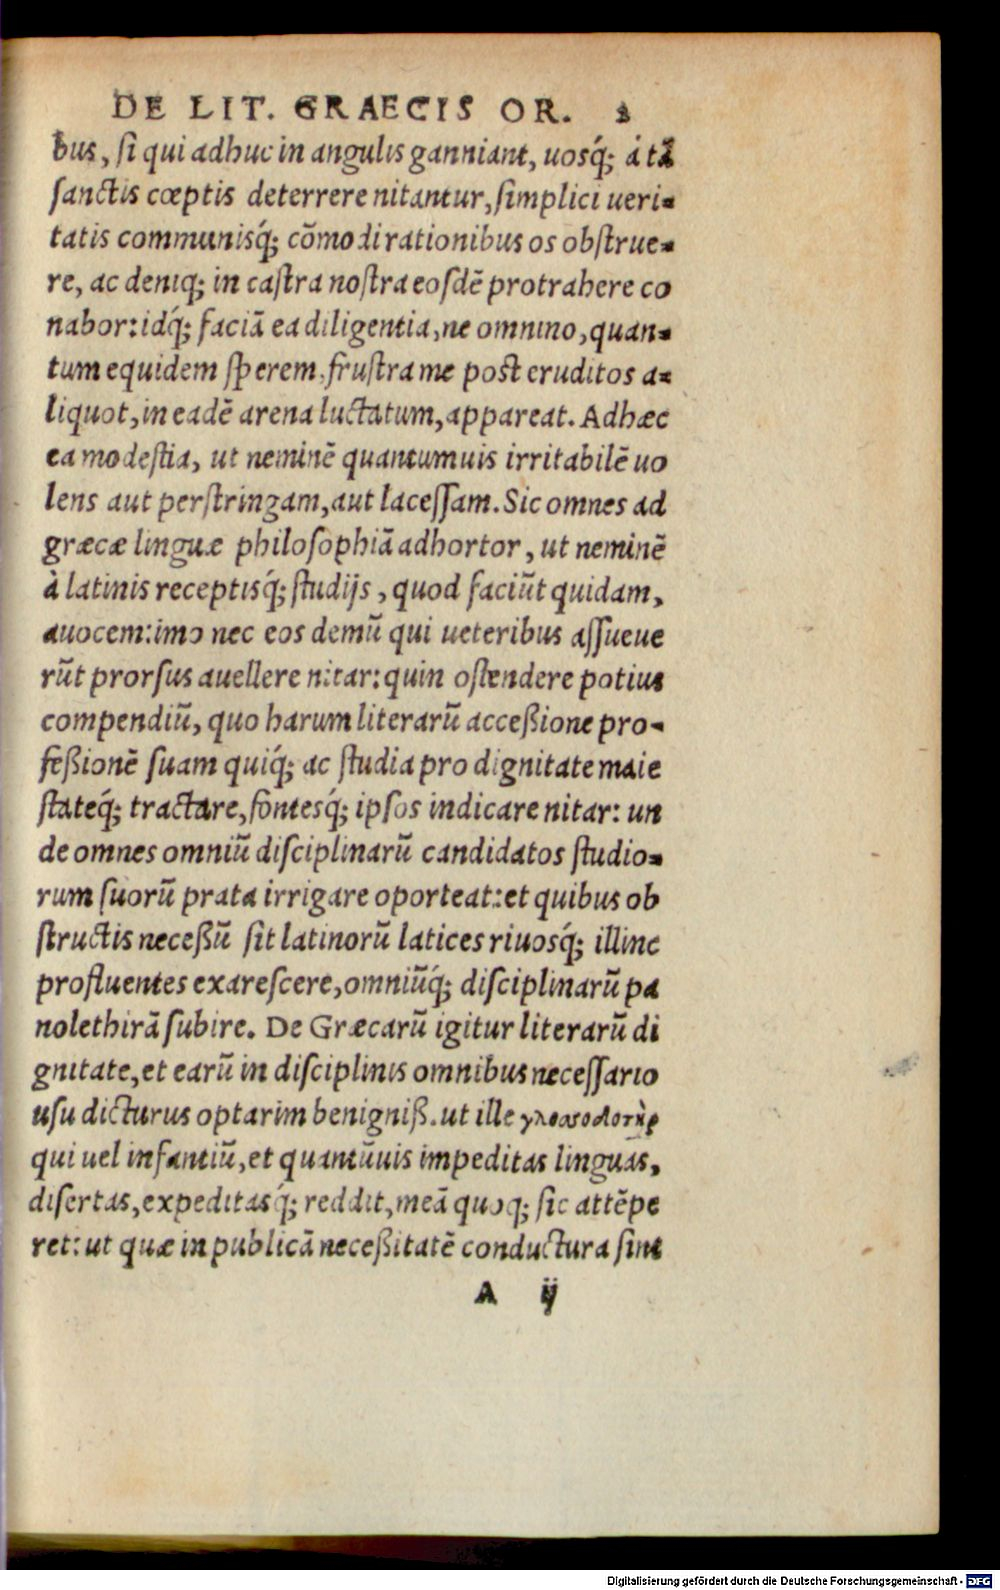 DE LIT. GRAECIS OR. 2
bus, ſi qui adhuc in angulis ganniant, uosq́; á tā
ſanctis cœptis deterrere nitantur, ſimplici ueri-
tatis communisq́; cōmodi rationibus os obſtrue-
re, ac deniq; in caſtra noſtra eoſdē protrahere co
nabor: idq́; faciā ea diligentia, ne omnino, quan-
tum equidem ſperem, fruſtra me poſt eruditos a-
liquot, in eadē arena luctatum, appareat. Adhæc
ea modeſtia, ut neminē quantumuis irritabilē uo
lens aut perſtringam, aut laceſſam. Sic omnes ad
græcæ linguæ philoſophiā adhortor, ut neminē
à latinis receptisq́; ſtudijs, quod faciūt quidam,
auocem: imo nec eos demū qui ueteribus aſſueue
rūt prorſus auellere nitar: quin oſtendere potius
compendiū, quo harum literarū acceßione pro-
feßionē ſuam quiq́; ac ſtudia pro dignitate maie
ſtateq́; tractare, fontesq́; ipſos indicare nitar: un
de omnes omniū diſciplinarū candidatos ſtudio-
rum ſuorū prata irrigare oporteat: et quibus ob
ſtructis neceßū ſit latinorū latices riuosq́; illinc
profluentes exareſcere, omniūq́; diſciplinarū pa
nolethirā ſubire. De Græcarū igitur literarū di
gnitate, et earū in diſciplinis omnibus neceſſario
uſu dicturus optarim benigniß. ut ille
qui uel infantiū, et quantūuis impeditas linguas,
diſertas, expeditasq́; reddit, meā quoq; ſic attēpe
ret: ut quæ in publicā neceßitatē conductura ſint
A ij
Digitalisierung gefördert durch die Deutsche Forschungsgemeinschaft - DFG